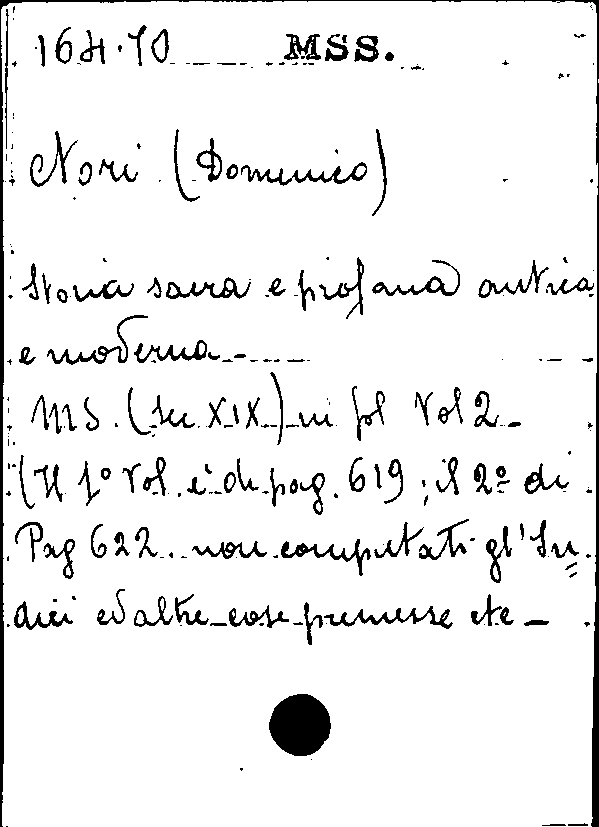 164.70 MSS.
Nori (Domenico)
Storia sacra e profana antica
e moderna -
MS. (Sec XIX) in fol Vol 2 -
(Il 1º Vol. è di pag. 619; il 2º di
Pag 622. non computati gl'In
dici ed altre cose premesse etc -